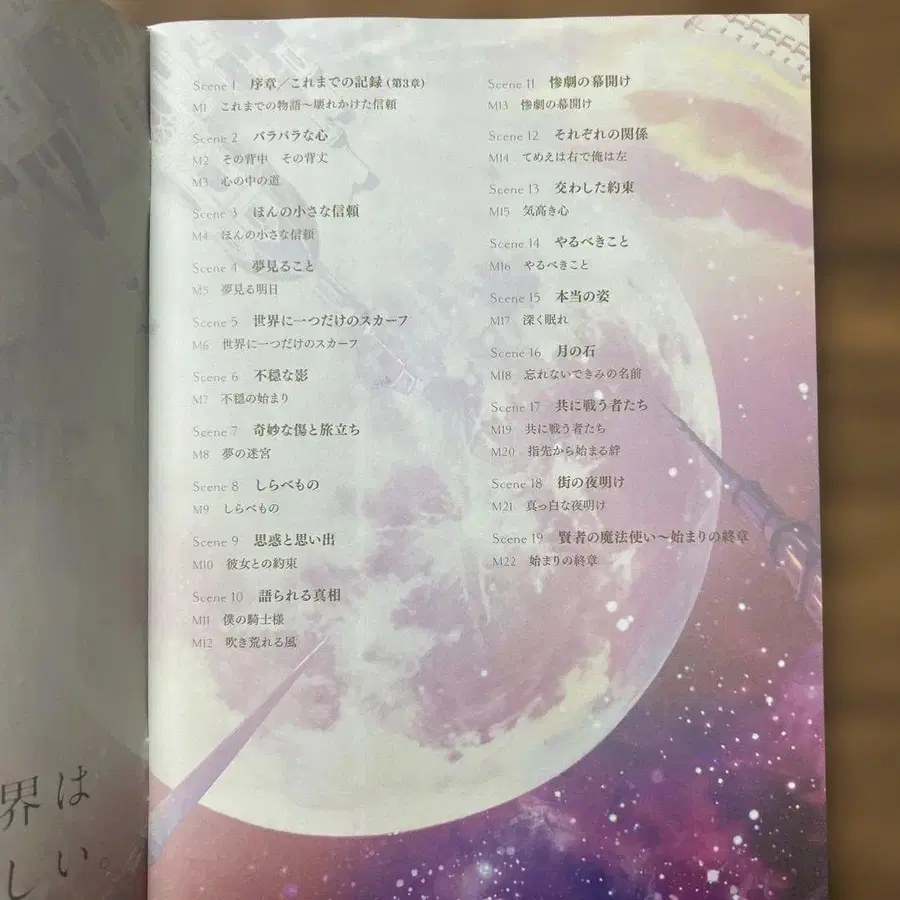 Scene 1 序章／これまでの記録（第3章）
M1 これまでの物語～壊れかけた信頼
Scene 2 バラバラな心
M2 その背中 その背丈
M3 心の中の道
Scene 3 ほんの小さな信頼
M4 ほんの小さな信頼
Scene 4 夢見ること
M5 夢見る明日
Scene 5 世界に一つだけのスカーフ
M6 世界に一つだけのスカーフ
Scene 6 不穏な影
M7 不穏の始まり
Scene 7 奇妙な傷と旅立ち
M8 夢の迷宮
Scene 8 しらべもの
M9 しらべもの
Scene 9 思惑と思い出
M10 彼女との約束
Scene 10 語られる真相
M11 僕の騎士様
M12 吹き荒れる風
Scene 11 惨劇の幕開け
M13 惨劇の幕開け
Scene 12 それぞれの関係
M14 てめえは右で俺は左
Scene 13 交わした約束
M15 気高き心
Scene 14 やるべきこと
M16 やるべきこと
Scene 15 本当の姿
M17 深く眠れ
Scene 16 月の石
M18 忘れないできみの名前
Scene 17 共に戦う者たち
M19 共に戦う者たち
M20 指先から始まる絆
Scene 18 街の夜明け
M21 真っ白な夜明け
Scene 19 賢者の魔法使い～始まりの終章
M22 始まりの終章
界は
しい。